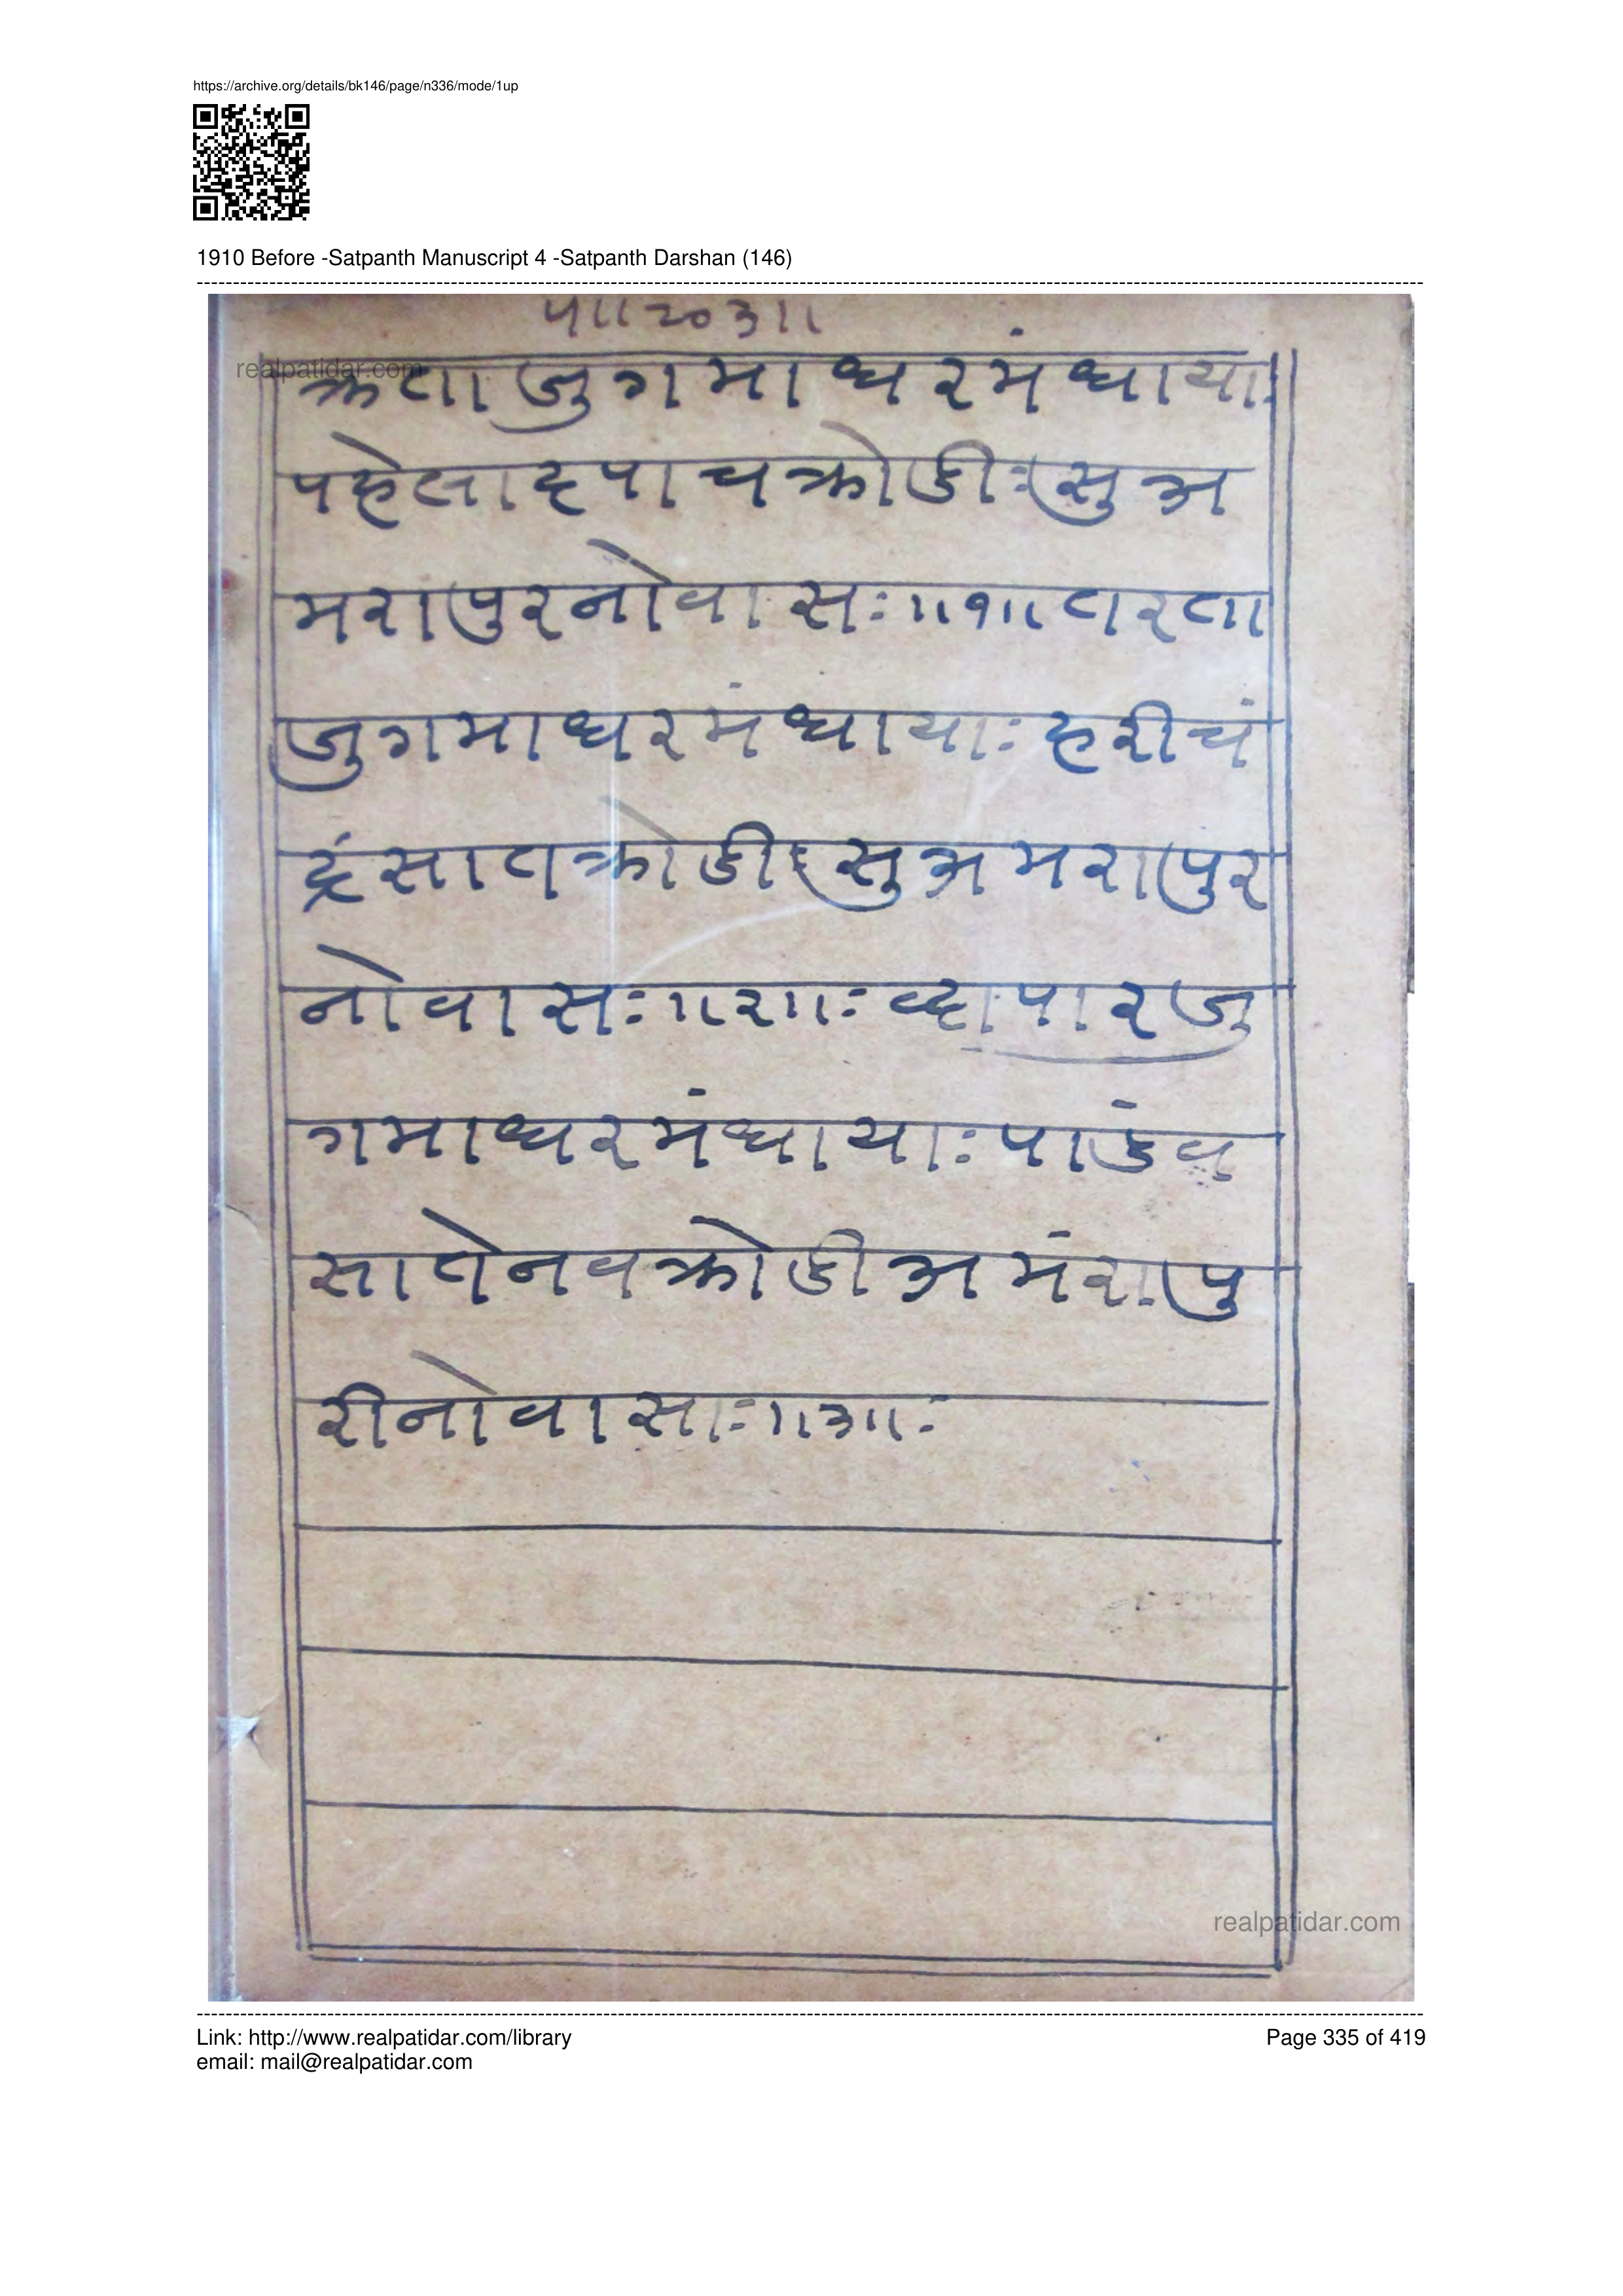 https://archive.org/details/bk146/page/n336/mode/1up
1910 Before -Satpanth Manuscript 4 -Satpanth Darshan (146)
५॥२०३॥
realpatidar.com
क्रताजुगमाधरमंधायाः
पहेलादपाचक्रोडीःसुअ
मरापुरनोवासः॥१॥तरता
जुगमाधरमंधायाः हरीचं
द्रंसातक्रोडीःसुअमरापुर
नोवासः॥२॥ः व्दापारजु
गमाधरमंधायाःपाडंव
सातेनवक्रोडीअमंरापु
रीनोवासाः॥३॥ः
realpatidar.com
Link: http://www.realpatidar.com/library
Page 335 of 419
email: mail@realpatidar.com